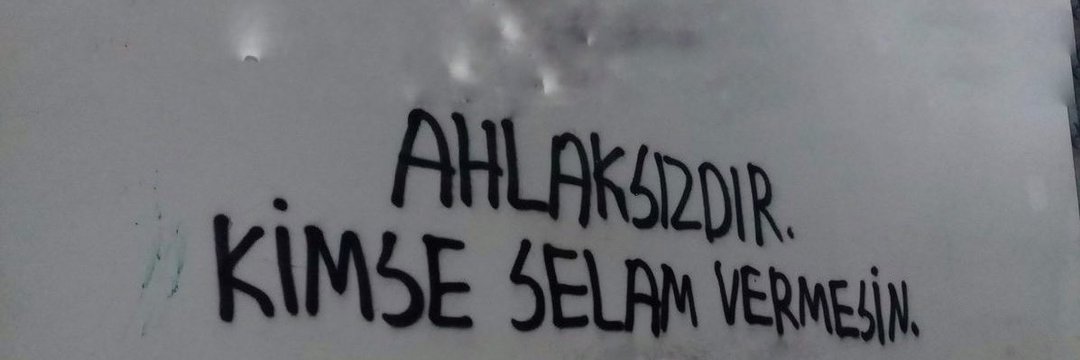 AHLAKSIZDIR.
KİMSE SELAM VERMESİN.